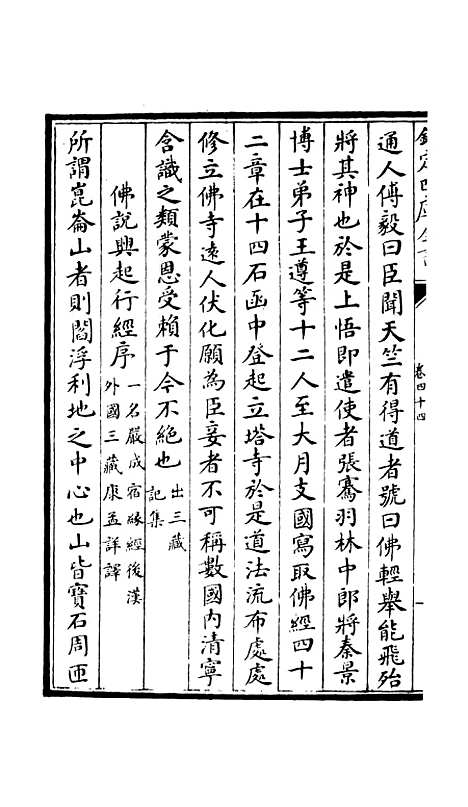 欽定四庫全書
卷四十四
通人傅毅曰臣聞天竺有得道者號曰佛輕舉能飛殆
將其神也於是上悟即遣使者張騫羽林中郎將秦景
博士弟子王遵等十二人至大月支國寫取佛經四十
二章在十四石函中登起立塔寺於是道法流布處處
修立佛寺遠人伏化願為臣妾者不可稱數國内清寧
含識之類蒙恩受賴于今不絶也出三藏記集
佛說興起行經序一名嚴成宿緣經後漢外國三藏康孟詳譯
所謂崑崙山者則閻浮利地之中心也山皆寶石周匝